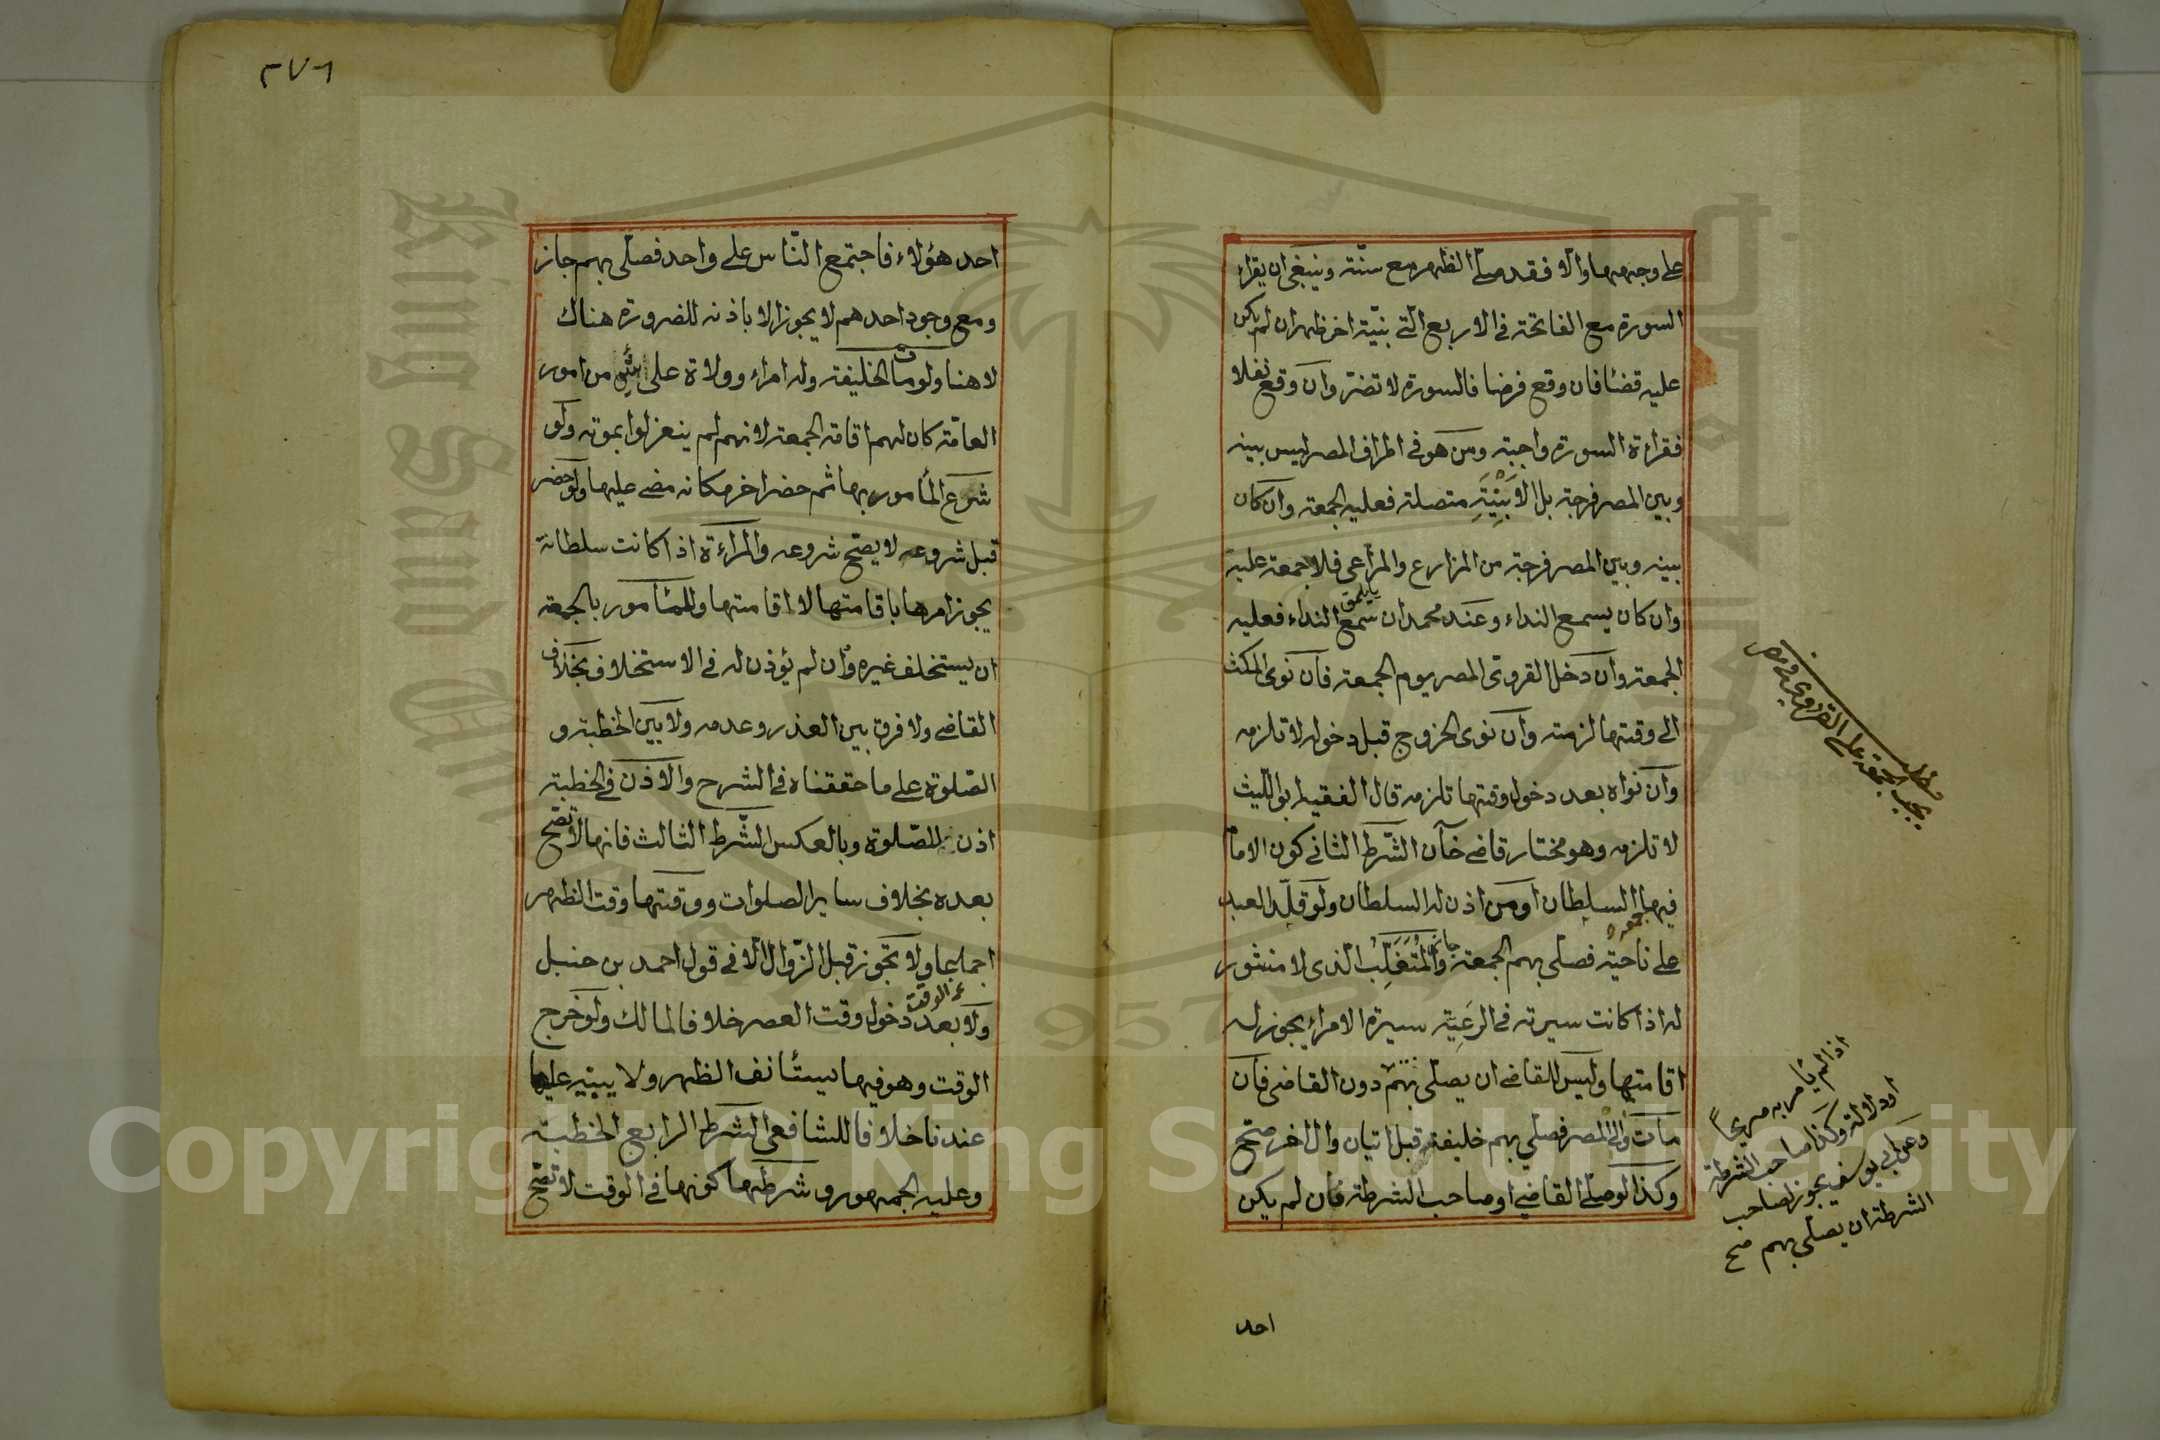 على وجهها والا فقد صلى الظهر مع سنته وينبغي ان يقراء
السورة مع الفاتحة في الاربع التى بنيّة اخر ظهر ان لم يكن
عليه قضا فان وقع فرضا فالسورة لا تضر وان وقع نفلا
فقراءة السورة واجبة ومن هو في اطراف المصر ليس بينه
وبين المصر فرجة بل الابنية متصلة فعليه الجمعة وان كان
بينه وبين المصر فرجة من المزارع والمراعى فلا جمعة عليه
وان كان يسمع النداء وعند محمد ان سمع النداء فعليه
الجمعة وان دخل القروى المصر يوم الجمعة فان نوى المكث
الى وقتها لزمته وان نوى الخروج قبل دخوله لا تلزمه
وان نواه بعد دخول وقتها تلزمه قال الفقيه ابو الليث
لا تلزمه وهو مختار قاضى خان الشرط الثانى كون الامام
فيها السلطان او من اذن له السلطان ولو قلّد العبد
على ناحية فصلى بهم الجمعة جاز والمُتَغَلِّب الذى لا منشور
له اذا كانت سيرته فى الرعيّة سيرة الامراء يجوز له
اقامتها وليس للقاضى ان يصلى بهم دون القاضى فان
مات والى المصر فصلى بهم خليفته قبل اتيان وال اخر صح
وكذا لو صلى القاضى او صاحب الشرطة فان لم يكن
يجب الجمعة على القروى فى مصر
اذا لم يأمر به صريحا
او دلالة وكذا صاحب الشرطة
وعن ابى يوسف يجوز لصاحب
الشرطة ان يصلى بهم صح
احد
٣٧٦
احد هؤلاء فاجتمع النّاس على واحد فصلّى بهم جاز
ومع وجود احدهم لا يجوز الا باذنه للضرورة هناك
لا هنا ولو مات الخليفة وله امراء وولاة على شئ من امور
العامّة كان لهم اقامة الجمعة لانهم لم ينعزلوا بموته ولو
شرع المأمور بها ثم حضر اخر مكانه مضى عليها ولو حضر
قبل شروعه لا يصح شروعه والمراءة اذا كانت سلطانة
يجوز امرها باقامتها لا اقامتها وللمأمور بالجمعة
ان يستخلف غيره وان لم يؤذن له فى الاستخلاف بخلاف
القاضى ولا فرق بين العذر وعدمه ولا بين الخطبة و
الصّلوة على ما حققناه فى الشرح والاذن فى الخطبة
اذن للصّلوة وبالعكس الشّرط الثالث فانها لا تصح
بعده بخلاف ساير الصلوات ووقتها وقت الظهر
اجماعا ولا تجوز قبل الزّوال الّا فى قول احمد بن حنبل
ولا بعد دخول وقت العصر خلافا لمالك ولو خرج
الوقت وهو فيها يستأنف الظهر ولا يبنيه عليها
عندنا خلافا للشافعى الشرط الرابع الخطبة
وعليه الجمهور وشرطها كونها فى الوقت لا تصح